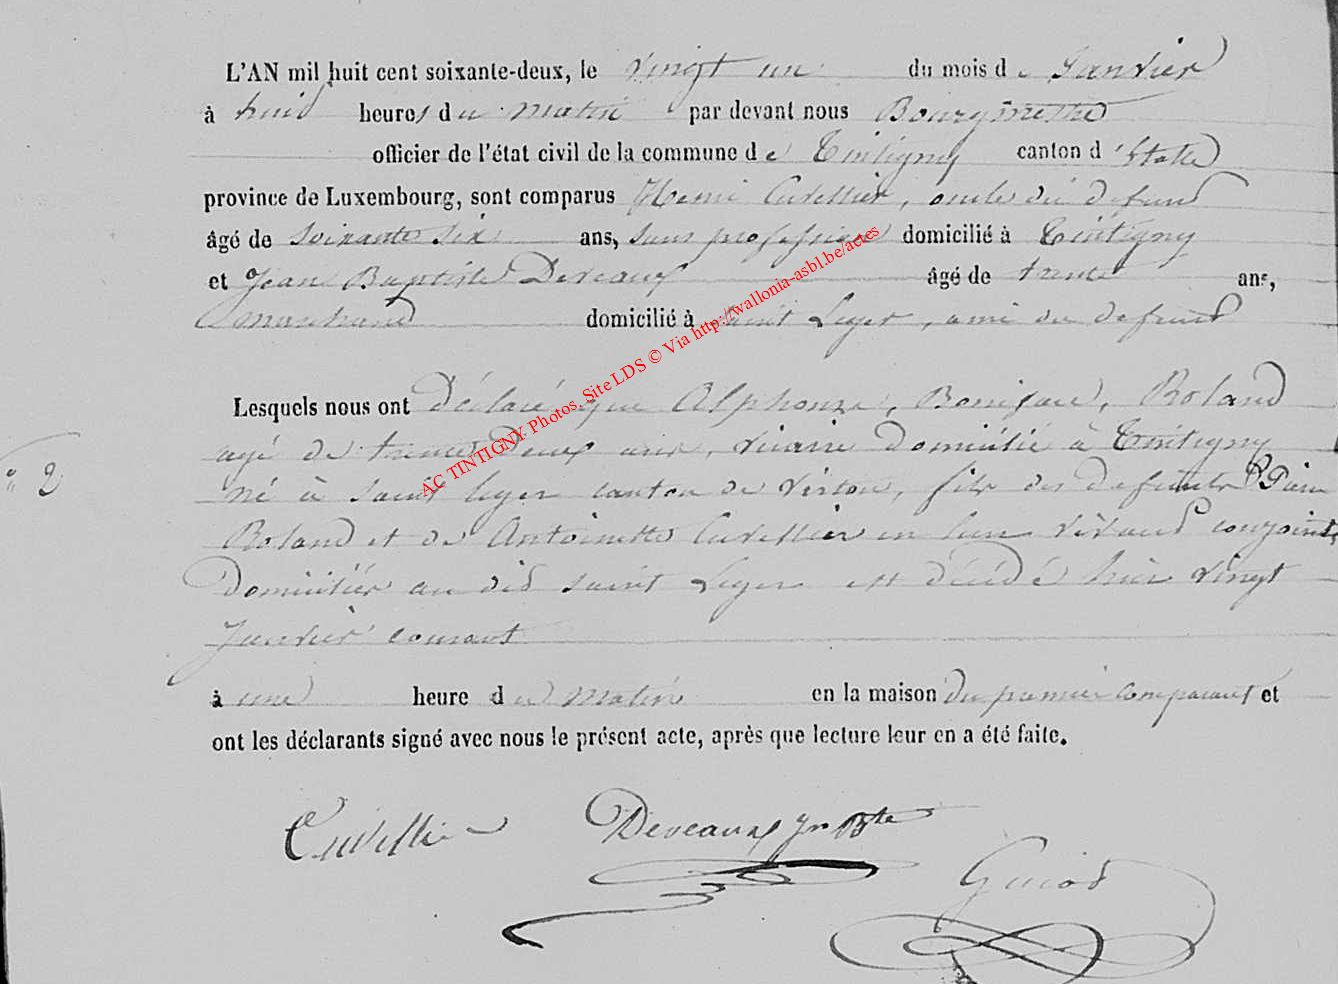 L'AN mil huit cent soixante-deux, le vingt un du mois de Janvier
à huit heures du matin par devant nous Bourgmestre
officier de l'état civil de la commune de Tintigny canton d'Etalle
province de Luxembourg, sont comparus Henri Cuvellier, oncle du défunt
âgé de soixante six ans, sans profession domicilié à Tintigny
et Jean Baptiste Deveaux âgé de trente ans,
marchand domicilié à Saint Leger, ami du defunt
Lesquels nous ont déclaré que Alphonse, Boniface, Roland
agé de trente deux ans, vicaire domicilié à Tintigny
né à saint leger canton de Virton, fils des defunts Pierre
Roland et de Antoinette Cuvellier en leur vivant conjoints
Domiciliés au dit saint Leger est décédé hier vingt
Janvier courant
n° 2
à une heure du matin en la maison du premier comparant et
ont les déclarants signé avec nous le présent acte, après que lecture leur en a été faite.
Cuvellier Deveaux Jn Bte
Guiot
AC TINTIGNY Photos, Site LDS © Via http://wallonia-asbl.be/actes